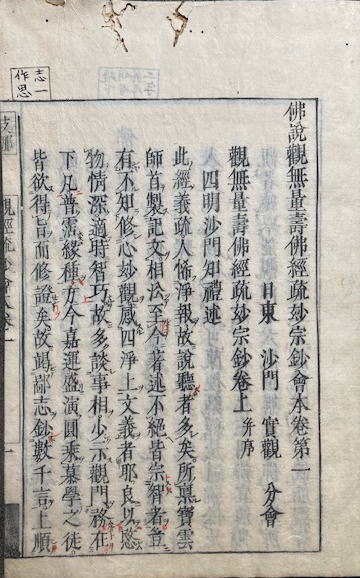 佛說觀無量壽佛經疏玅宗鈔會本卷第一
日東 沙門 實觀 分會
觀無量壽佛經疏玅宗鈔卷上 并序
四明沙門知禮述
此經義疏人俙淨報故說聽者多矣所稟寶雲
師首製記文相沿至今著述不絕皆宗智者豈
有不知修心妙觀感四淨土文義者耶良以愍
物情深適時智巧故多談事相少示觀門務在
下凡普霑緣種方今嘉運盛演圓乘慕學之徒
皆欲得旨而修證矣故竭鄙志鈔數千言上順
志一
作思
觀經疏